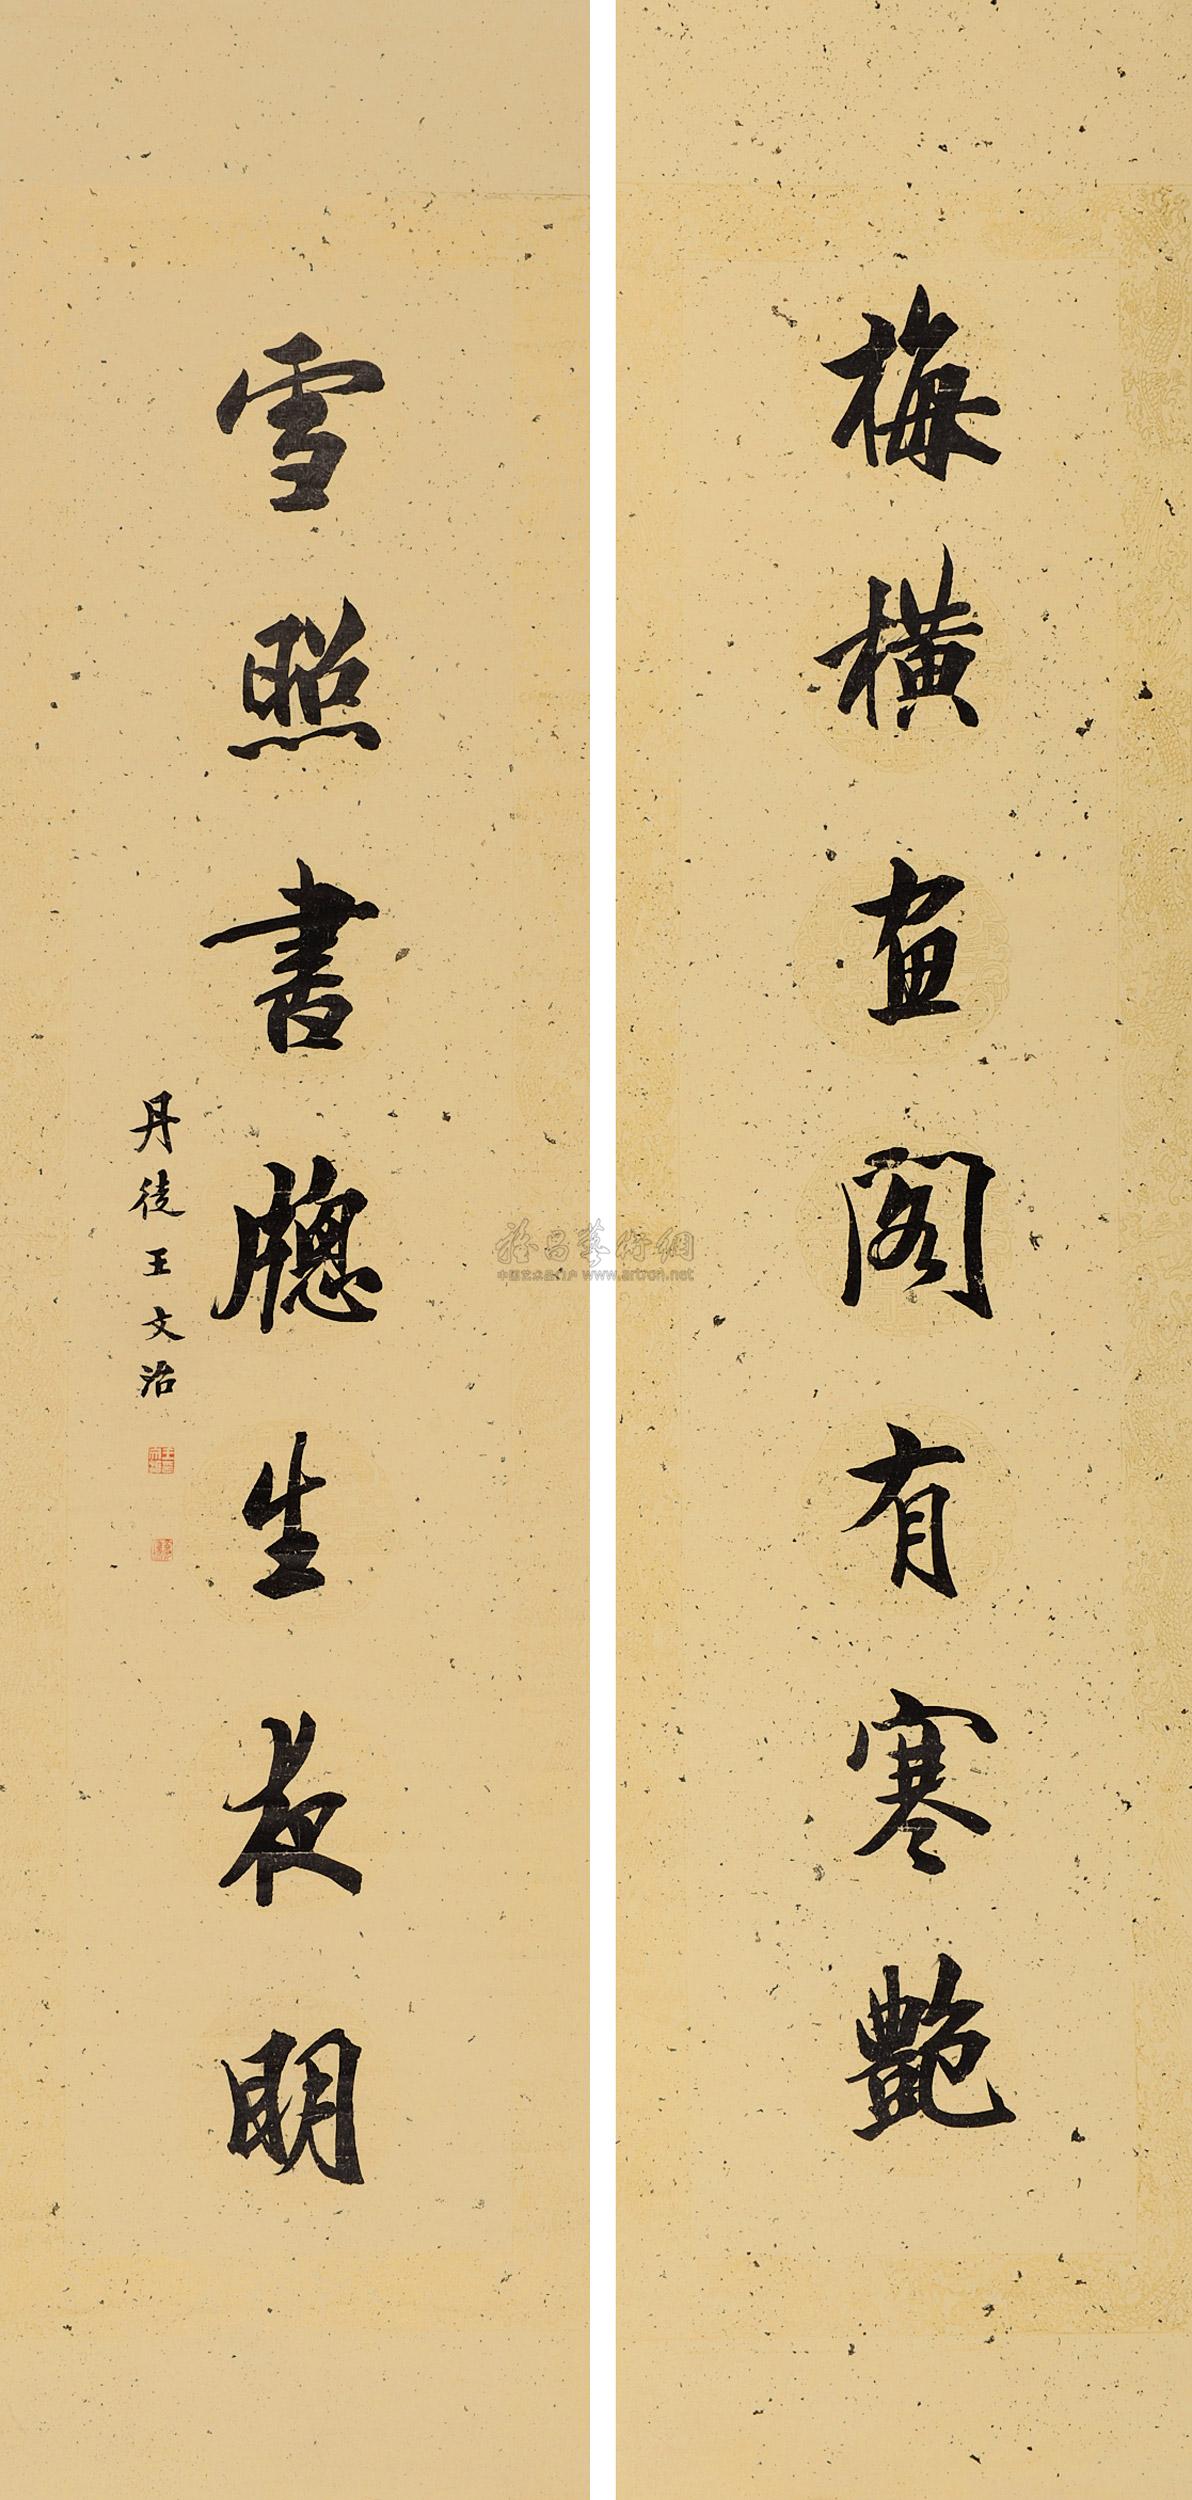 梅橫画阁有寒艷
雪照書牕生夜明
丹徒王文治
雅昌藝術網
中国艺术品门户 www.artron.net